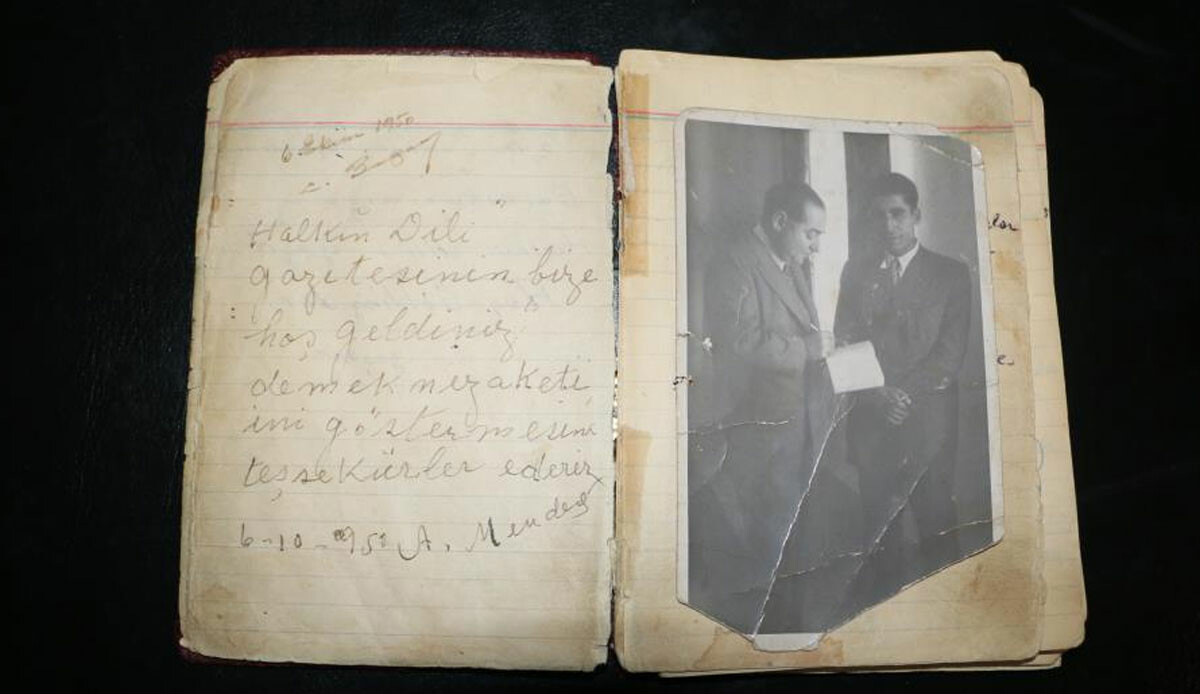 6 Ekim 1950
C. Bayar
"Halkın Dili"
gazetesinin bize
"hoş geldiniz"
demek nezaketi
ini göstermesine
teşsekürler ederiz
6-10-950 A. Mendes
lar
e